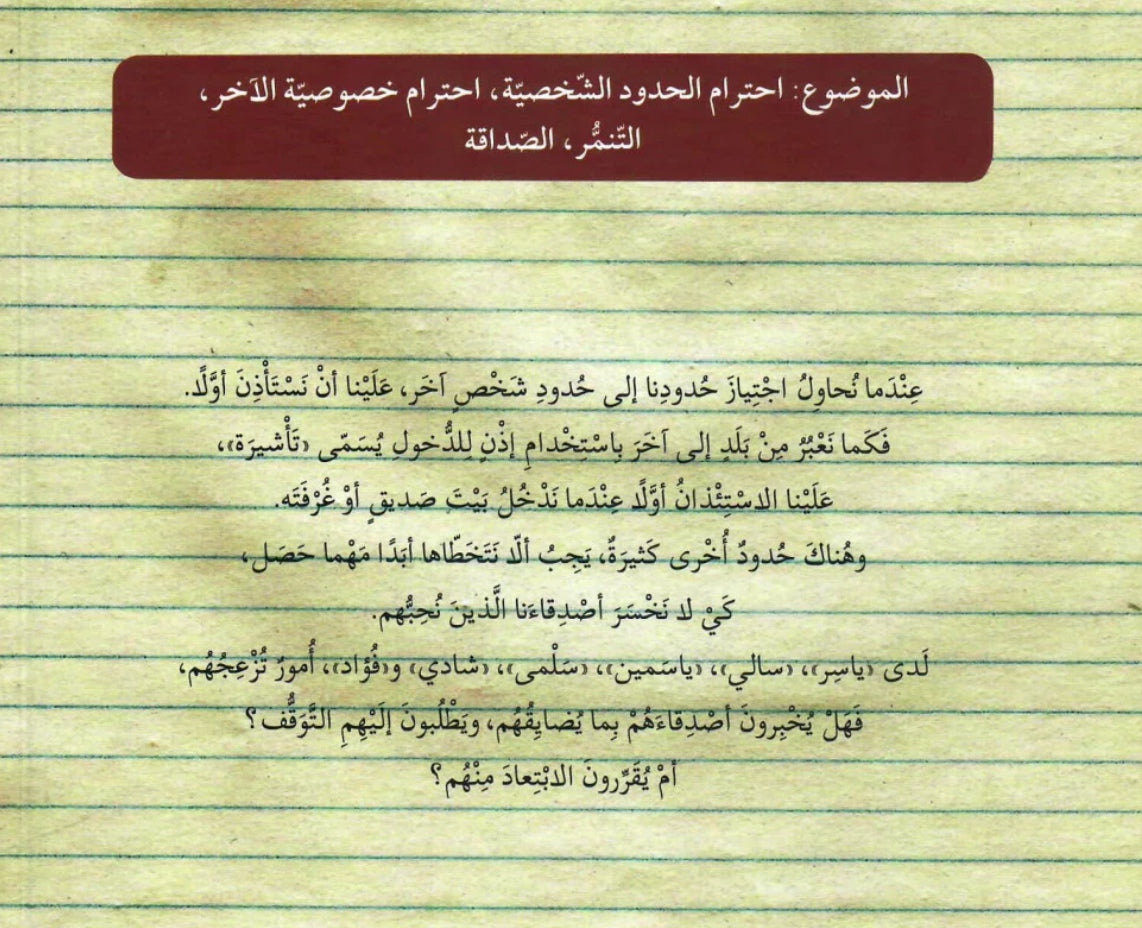 الموضوع: احترام الحدود الشّخصيّة، احترام خصوصيّة الآخر،
التّنمُّر، الصّداقة
عِنْدَما نُحاوِلُ اجْتِيازَ حُدودِنا إلى حُدودِ شَخْصٍ آخَر، عَلَيْنا أنْ نَسْتَأْذِنَ أوَّلًا.
فَكَما نَعْبُرُ مِنْ بَلَدٍ إلى آخَرَ بِاسْتِخْدامِ إذْنٍ لِلدُّخولِ يُسَمّى «تَأْشيرَة»،
عَلَيْنا الاسْتِئْذانُ أوَّلًا عِنْدَما نَدْخُلُ بَيْتَ صَديقٍ أوْ غُرْفَتَه.
وهُناكَ حُدودٌ أُخْرى كَثيرَةٌ، يَجِبُ ألّا نَتَخَطّاها أبَدًا مَهْما حَصَل،
كَيْ لا نَخْسَرَ أصْدِقاءَنا الَّذينَ نُحِبُّهم.
لَدى «ياسِر»، «سالي»، «ياسَمين»، «سَلْمى»، «شادي» و«فُؤاد»، أُمورٌ تُزْعِجُهُم،
فَهَلْ يُخْبِرونَ أصْدِقاءَهُمْ بِما يُضايِقُهُم، ويَطْلُبونَ إلَيْهِمِ التَّوَقُّف؟
أمْ يُقَرِّرونَ الابْتِعادَ مِنْهُم؟